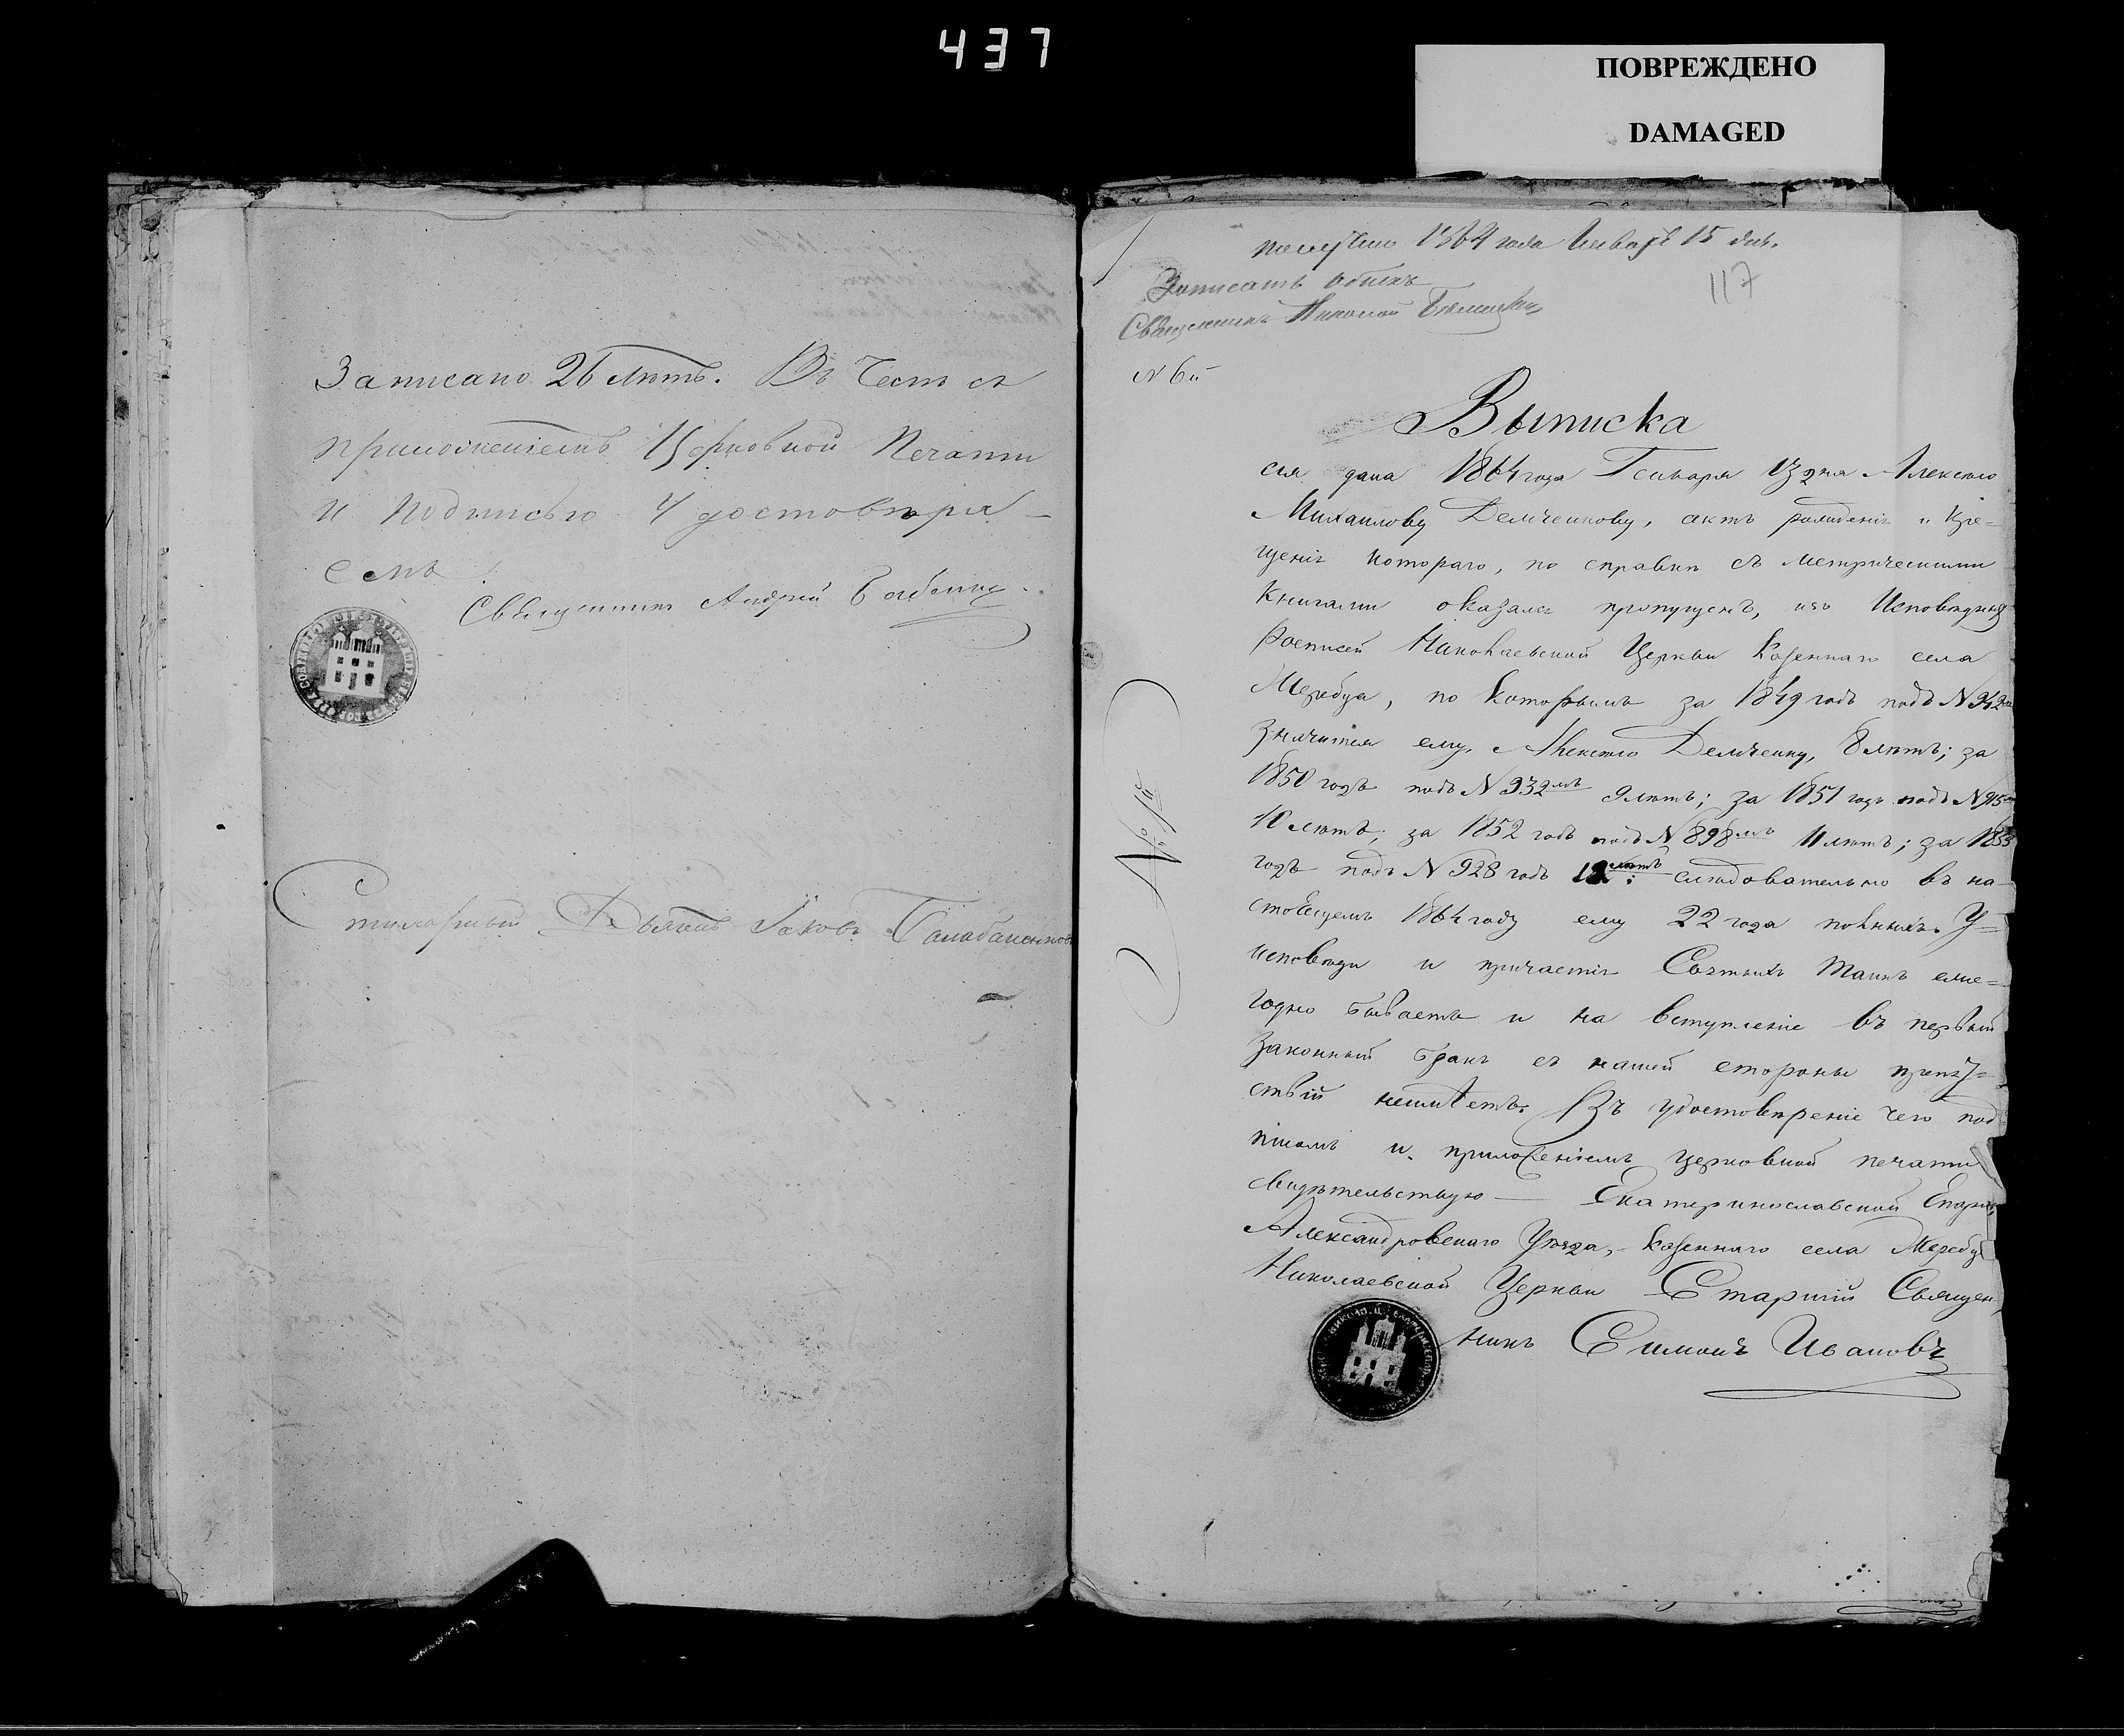 437
ПОВРЕЖДЕНО
DAMAGED
Записано 26 лѣтъ. Въ чемъ съ
приложеніемъ Церковной Печати
и подписью Удостовѣря-
емъ.
Священникъ Андрей
Дьякъ Іаковъ Балабаненковъ
получено 1864 года Января 15 дня.
117
Записать обыскъ
Священникъ Николай
№ 6й
Выписка
сія дана 1864 года Генваря 13 дня Алексѣю
Михаилову Демченкову, актъ рожденія и кре=
щенія котораго, по справки съ метрическими
книгами оказался пропущенъ, изъ Исповѣдныхъ
росписей Николаевской Церкви Казеннаго села
Жеребца, по которымъ за 1849 годъ подъ № 942мъ
значится ему, Алексѣю Демченку, 8 лѣтъ; за
1850 годъ подъ № 932мъ 9 лѣтъ; за 1851 годъ подъ № 915мъ
10 лѣтъ; за 1852 годъ подъ № 898мъ 11 лѣтъ; за 1853
годъ подъ № 928 годъ 12 лѣтъ; слѣдовательно въ на-
стоящемъ 1864 году ему 22 года полныхъ. У=
исповѣди и причастія Святыхъ Таинъ еже=
годно бываетъ и на вступленіе въ первый
законный бракъ съ нашей стороны препят=
ствій неимѣетъ. Въ удостовѣреніе чего под
писомъ и приложеніемъ церковной печати
свидѣтельствую — Екатеринославской Епархіи,
Александровскаго Уѣзда, казеннаго села Жеребца
Николаевской Церкви Старшій Священ
никъ Симонъ Ивановъ
№ 1й